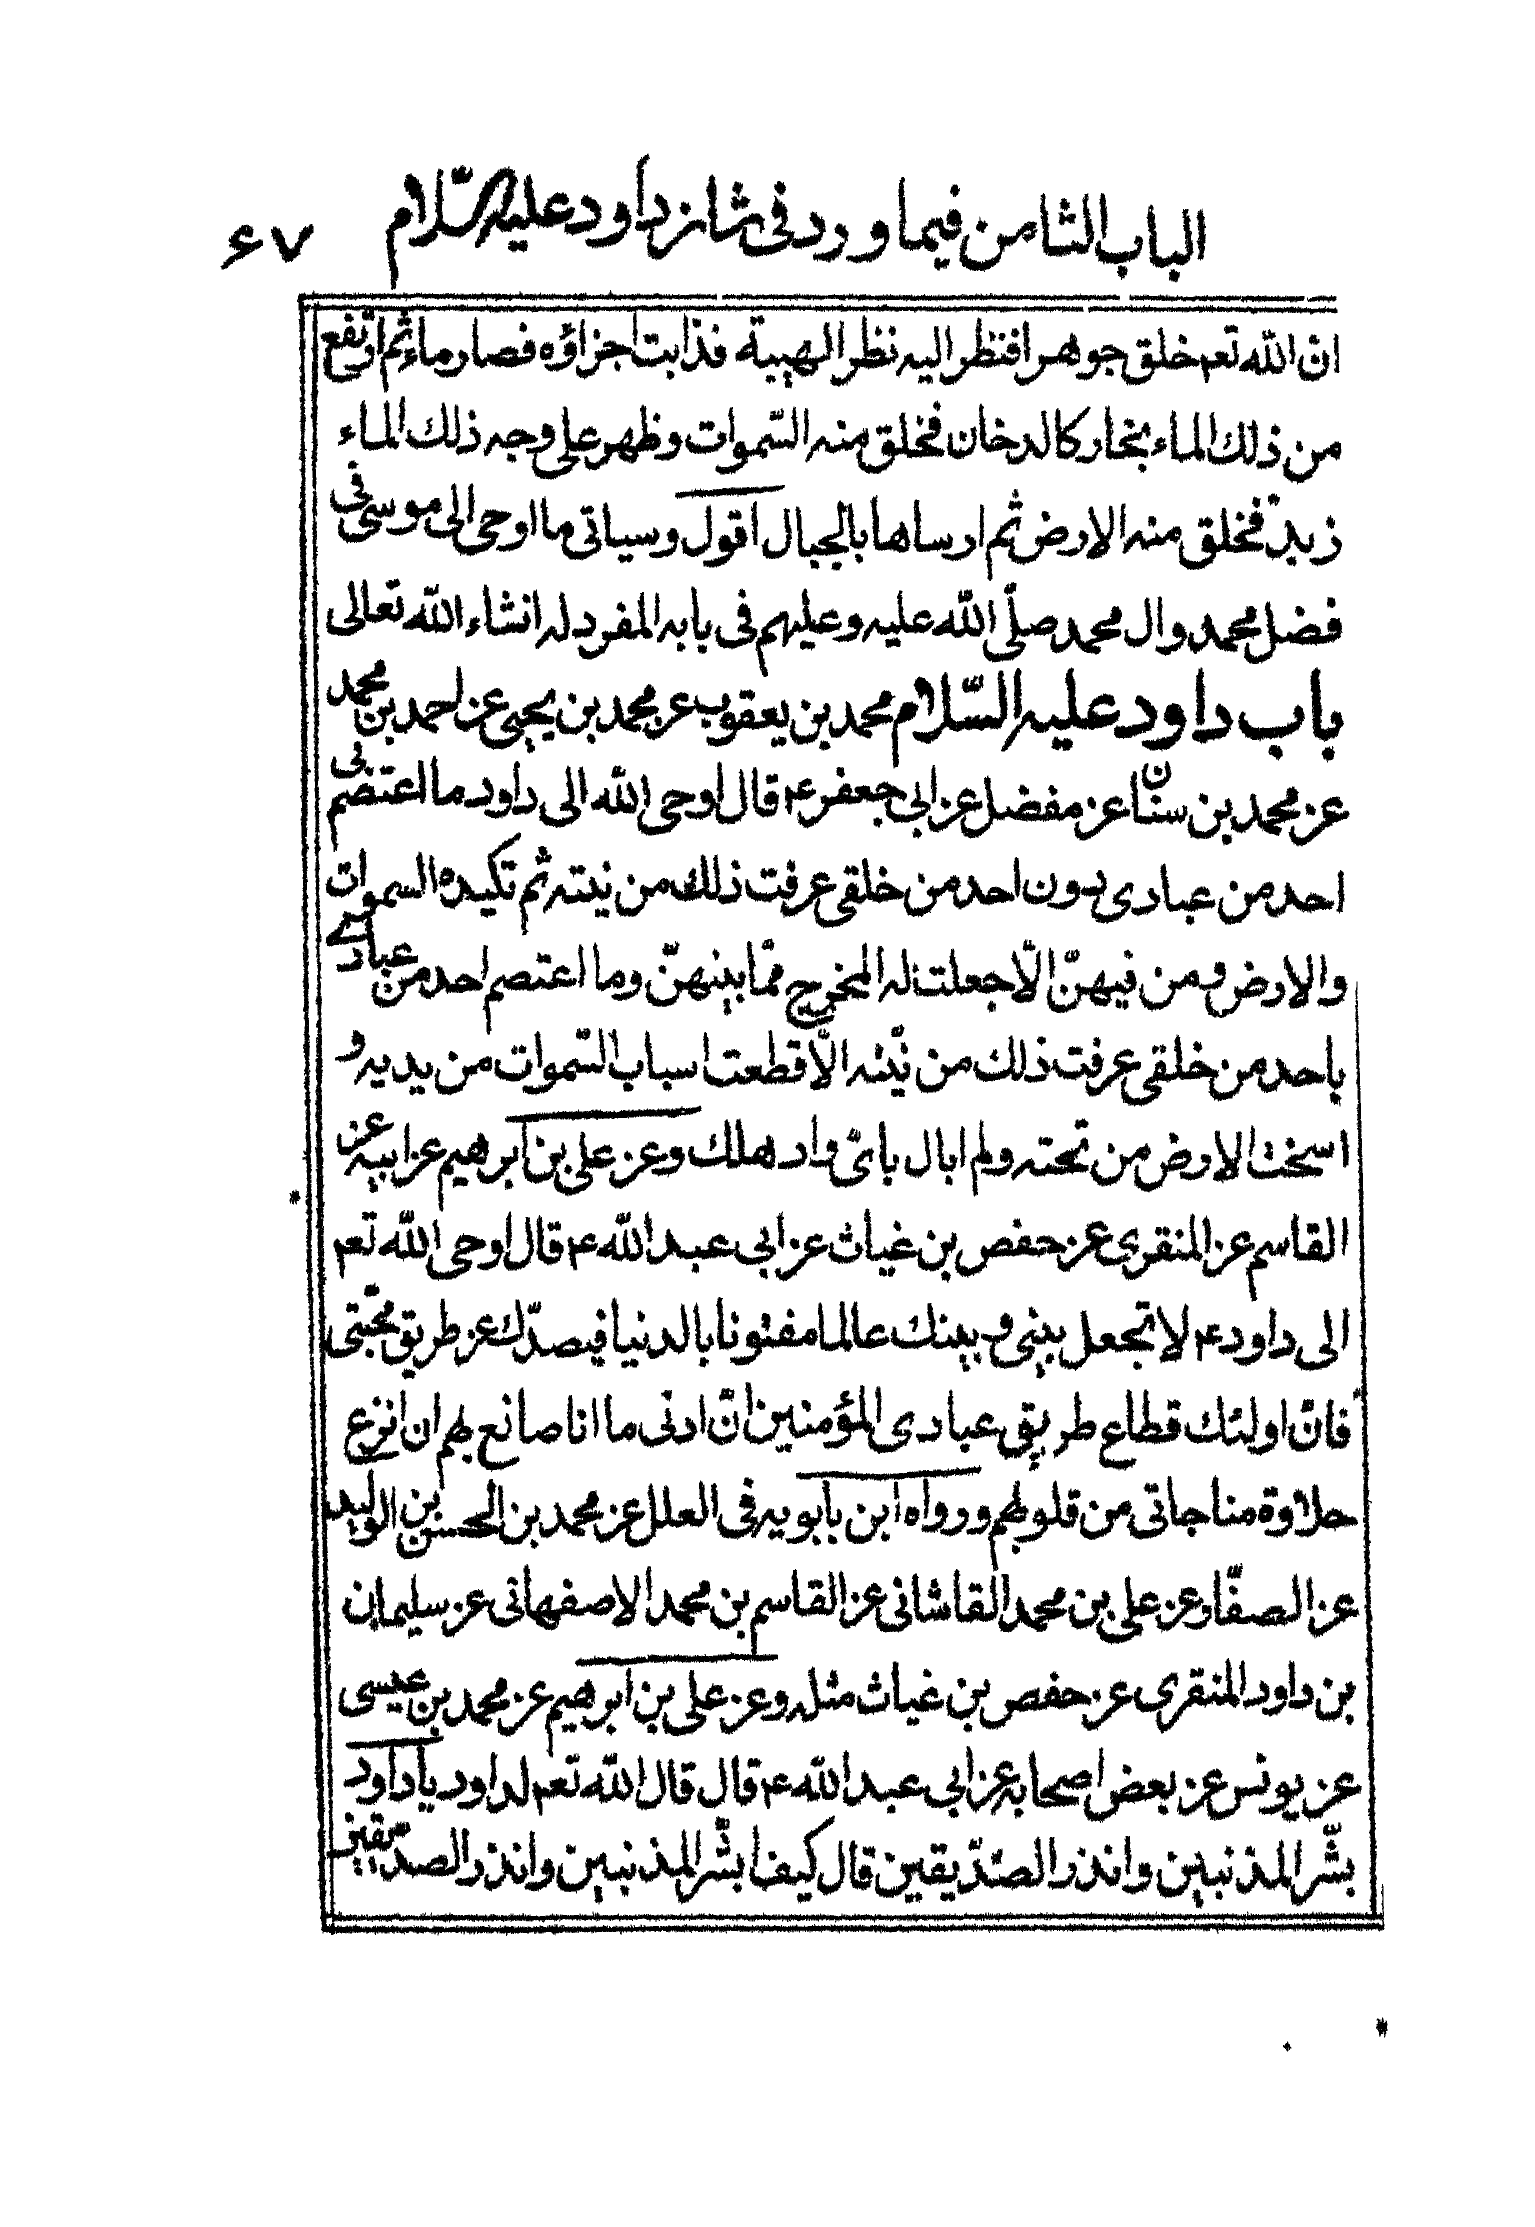 الباب الثامن فيما ورد فى شان داود عليه السّلام ۶۷
ان الله تعم خلق جوهرا فنظر اليه نظر الهيبة فذابت اجزاؤه فصار ماء ثم ارتفع
من ذلك الماء بخار كالدخان فخلق منه السّموات وظهر على وجه ذلك الماء
زبد فخلق منه الارض ثم ارساها بالجبال اقول وسياتى ما اوحى الى موسى فى
فضل محمد وال محمد صلّى الله عليه وعليهم فى بابه المفرد له انشاء الله تعالى
باب داود عليه السّلام محمد بن يعقوب عن محمد بن يحيى عن احمد بن محمد
عن محمد بن سنان عن مفضل عن ابى جعفر ع قال اوحى الله الى داود ما اعتصم بى
احد من عبادى بدون احد من خلقى عرفت ذلك من نيته ثم تكيده السموات
والارض ومن فيهنّ الّا جعلت له المخرج ممّا بينهنّ وما اعتصم احد من عبادى
باحد من خلقى عرفت ذلك من نيّته الّا قطعت اسباب السّموات من يديه و
اسخت الارض من تحته ولم ابال باىّ واد هلك وعن على بن ابرهيم عن ابيه عن
القاسم عن المنقرى عن حفص بن غياث عن ابى عبد الله ع قال اوحى الله تعم
الى داود ع لا تجعل بينى وبينك عالما مفتونا بالدنيا فيصدّك عن طريق محبّتى
فانّ اولئك قطاع طريق عبادى المؤمنين انّ ادنى ما انا صانع بهم ان انزع
حلاوة مناجاتى من قلوبهم ورواه ابن بابويه فى العلل عن محمد بن الحسن بن الوليد
عن الصفّار وعن على بن محمد القاشانى عن القاسم بن محمد الاصفهانى عن سليمان
بن داود المنقرى عن حفص بن غياث مثله وعن على بن ابرهيم عن محمد بن عيسى
عن يونس عن بعض اصحابه عن ابى عبد الله ع قال قال الله تعم لداود يا داود
بشّر المذنبين وانذر الصّدّيقين قال كيف ابشّر المذنبين وانذر الصدّيقين